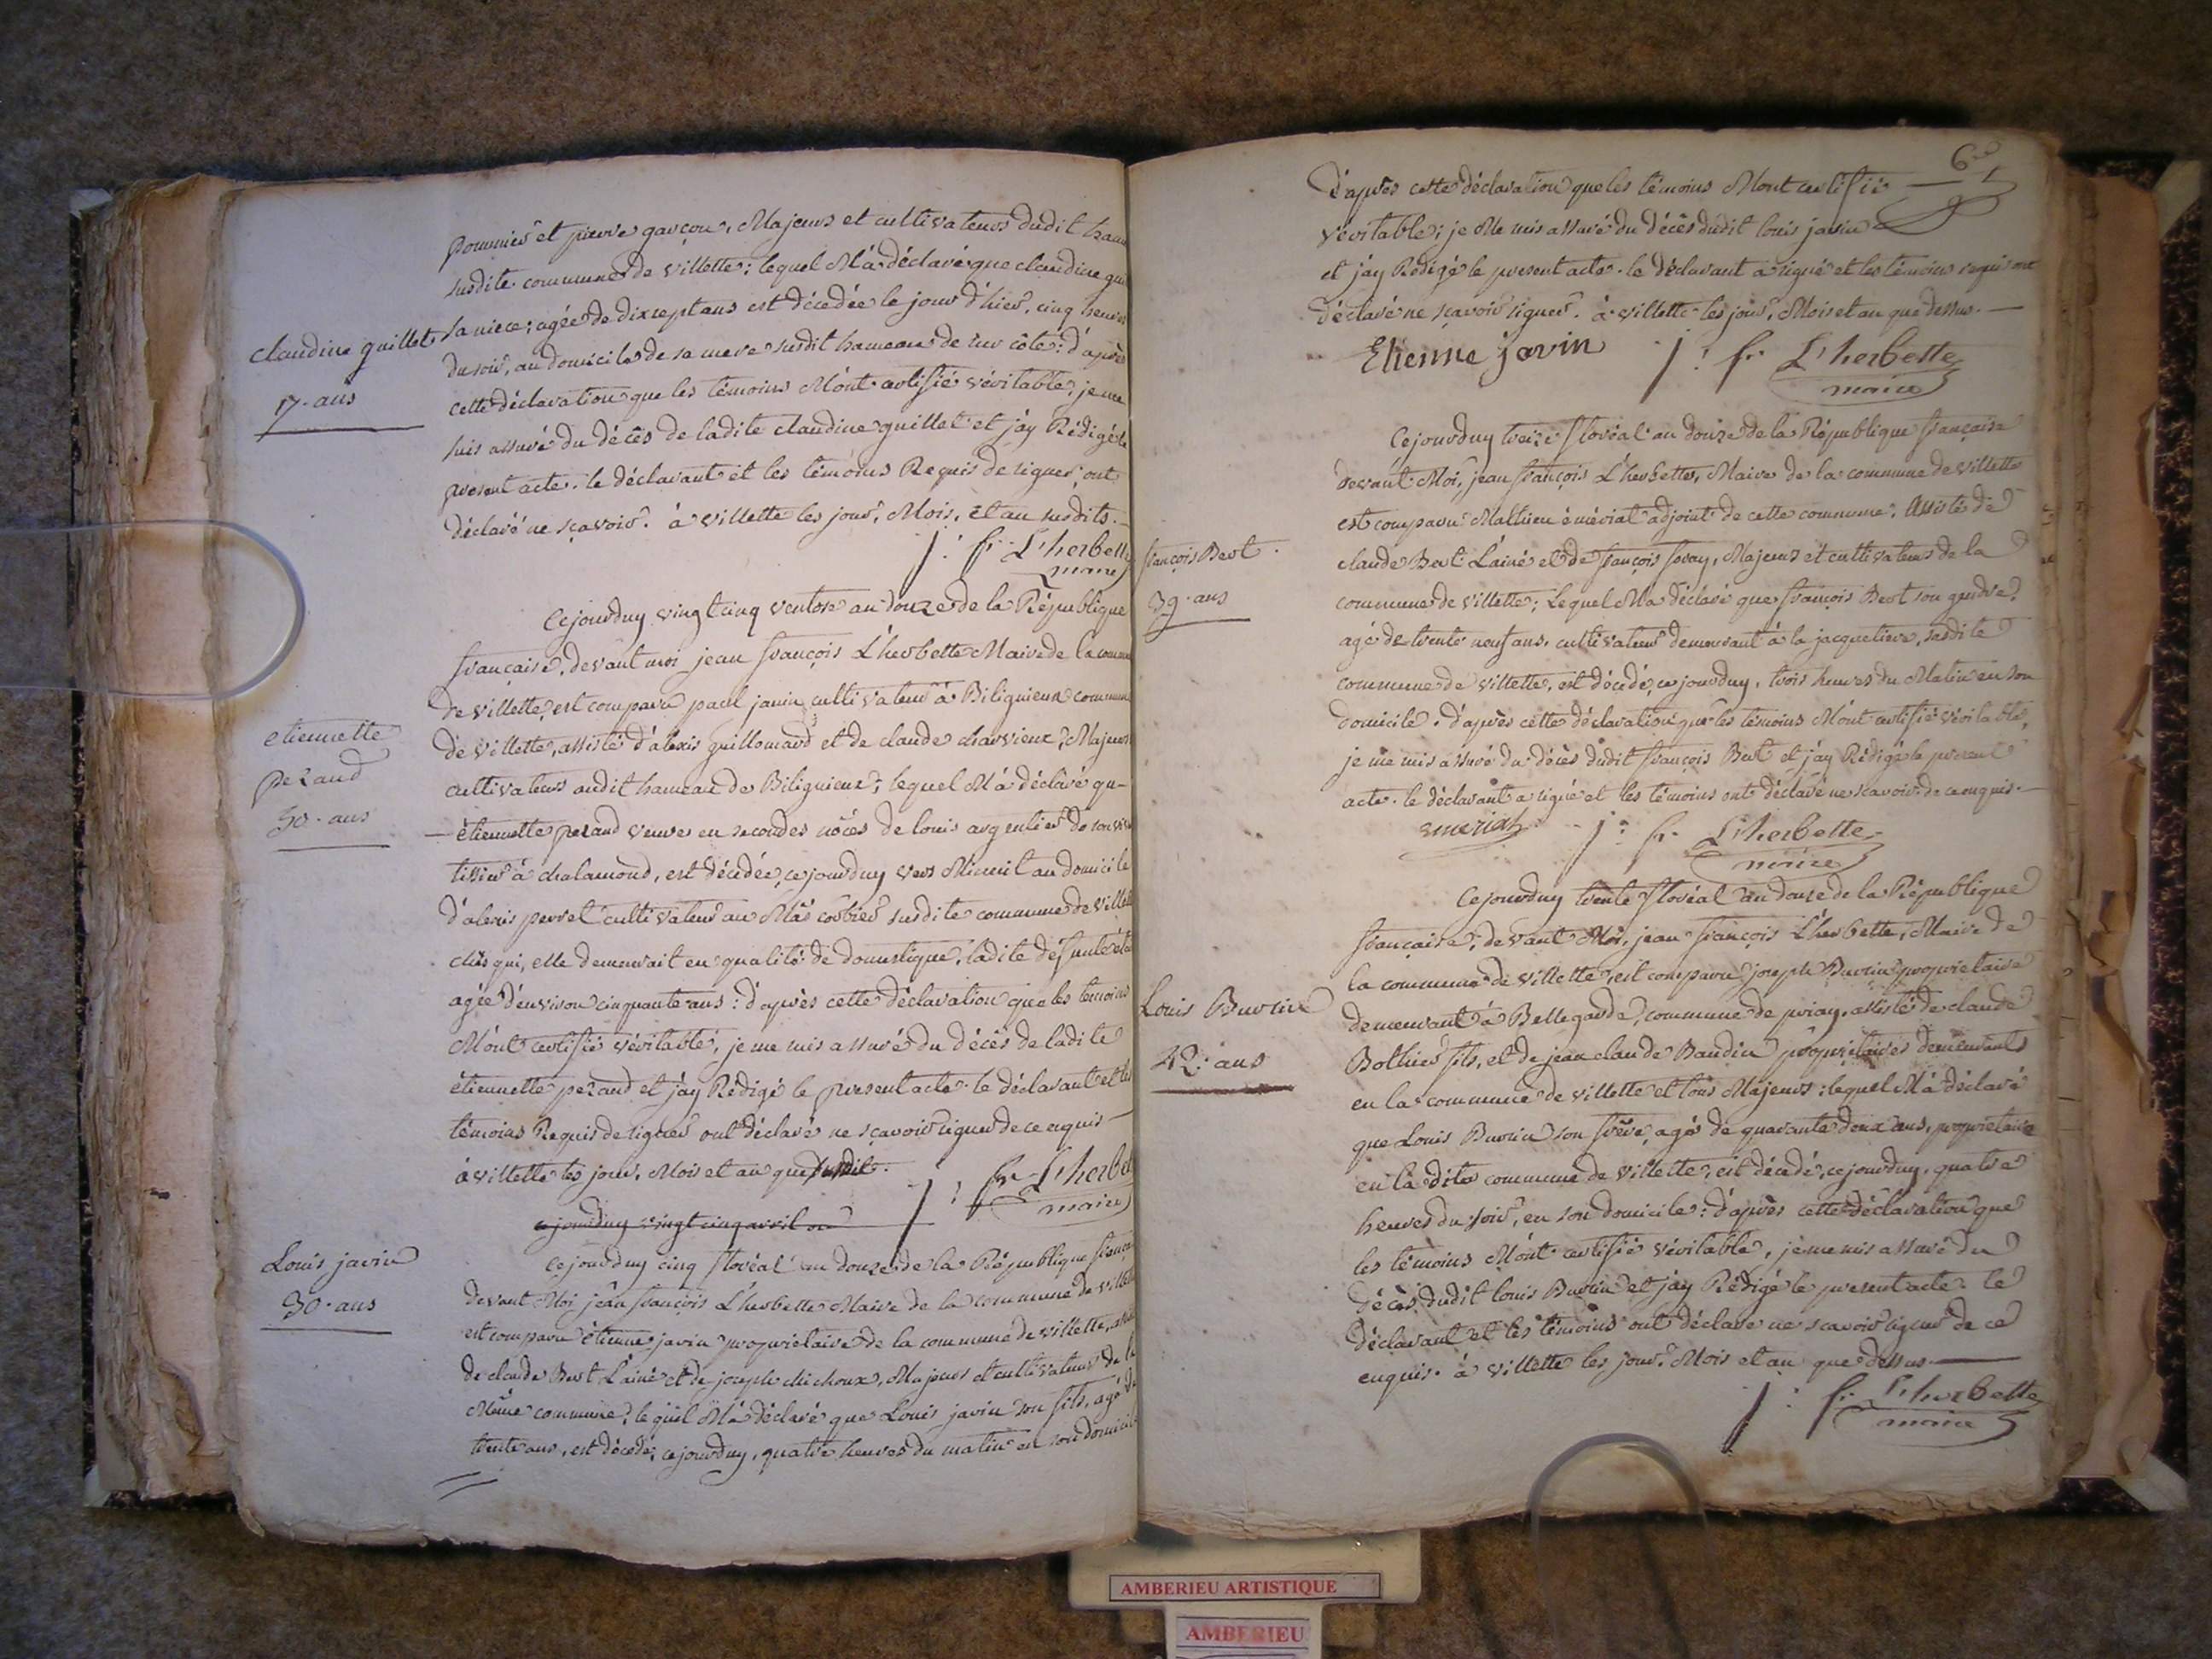 pommier et pierre garçon, Majeurs et cultivateurs dudit ham
susdite commune de villette; lequel M'a déclaré que claudine gui
claudine guillet
17. ans
sa niece; agée de dix sept ans est décedée le jour d'hier, cinq heures
du soir, au domicile de sa mere susdit hameau de sur côte: d'après
cette déclaration que les témoins M'ont certifié véritable; je me
suis assuré du décès de ladite claudine guillet et j'ay Rédigé le
present acte. le déclarant et les témoins Requis de signer, ont
déclaré ne sçavoir. à villette les jour, Mois, et an susdits.
j: fr. L'herbette
maire
Cejourduy vingt cinq ventose an douze de la République
française, devant moi jean françois L'herbette Maire de la commu
de villette, est comparu paul janin cultivateur à Biliguieux commune
etiennette
pezand
50. ans
de villette, assisté d'alexis guillomard et de claude charvieux, Majeurs
cultivateurs audit hameau de Biliguieux; lequel M'a déclaré qu-
-étiennette pezand veuve en secondes nôces de louis argentier de son viv
tissier à chalamond, est décédée, cejourduy vers Minuit au domicile
d'alexis perret cultivateur au Mâs corbier susdite commune de villette
chés qui, elle demeurait en qualité de domestique, ladite défunte étai
agée d'environ cinquante ans: d'après cette déclaration que les temoins
M'ont certifié véritable, je me mis assuré du décès de ladite
étiennette pezand et j'ay Rédigé le present acte. le déclarant et les
témoins Requis de signer ont déclaré ne sçavoir signer de ce enquis
à villette les jour, Mois et an que susdit.
j: fr. L'herbet
maire
cejourduy vingt cinq avril
Louis javin
30. ans
Cejourduy cinq floréal an douze de la République franç
devant Moi jean françois L'herbette Maire de la commune de villette
est comparu étienne javin propriétaire de la commune de villette, assis
de claude Bert L'ainé et de joseph michoux, Majeurs et cultivateurs de la
Même commune; lequel M'a déclaré que Louis javin son fils, agé de
trente ans, est décedé, cejourduy, quatre heures du matin en son domicile
6
D'après cette déclaration que les témoins M'ont certifié
véritable; je Me mis assuré du décès dudit louis javin
et j'ay Rédigé le present acte. le déclarant a signé et les témoins requis ont
déclaré ne sçavoir signer. à villette les jour, Mois et an que dessus.
Etienne javin j: fr. L'herbette
maire
Cejourduy treize floréal an douze de la République française
devant Moi, jean françois L'herbette, Maire de la commune de villette
est comparu Mathieu émériat adjoint de cette commune, Assisté de
françois Bert.
39. ans
claude Bert L'ainé et de françois foray, Majeurs et cultivateurs de la
commune de villette; Lequel M'a déclaré que françois Bert son gendre,
agé de trente neuf ans, cultivateur demeurant à la jacquetiere, susdite
commune de villette, est décedé, cejourduy, trois heures du Matin en son
domicile. d'après cette déclaration que les témoins M'ont certifié véritable,
je me mis assuré du décès dudit françois Bert et j'ay Rédigé le present
acte. le déclarant a signé et les témoins ont déclaré ne scavoir de ce enquis.
emeriat j: fr. L'herbette
maire
Cejourduy trente floréal an douze de la République
française, devant Moi, jean françois L'herbette, Maire de
la commune de villette, est comparu joseph Buvrin propriétaire
Louis Buvrin
42. ans
demeurant à Bellegarde, commune de priay, assisté de claude
Bothier fils, et de jean claude Baudin propriétaires demeurants
en la commune de villette et tous Majeurs; lequel M'a déclaré
que Louis Buvrin son frère, agé de quarante deux ans, propriétaire
en la dite commune de villette, est décedé, cejourduy, quatre
heures du soir, en son domicile: d'après cette déclaration que
les témoins M'ont certifié véritable, je me mis assuré du
décès dudit louis Buvrin et j'ay Rédigé le present acte. le
déclarant et les témoins ont déclaré ne scavoir signer de ce
enquis. à villette les jour, Mois et an que dessus.
j: fr. L'herbette
maire
AMBERIEU ARTISTIQUE
AMBERIEU